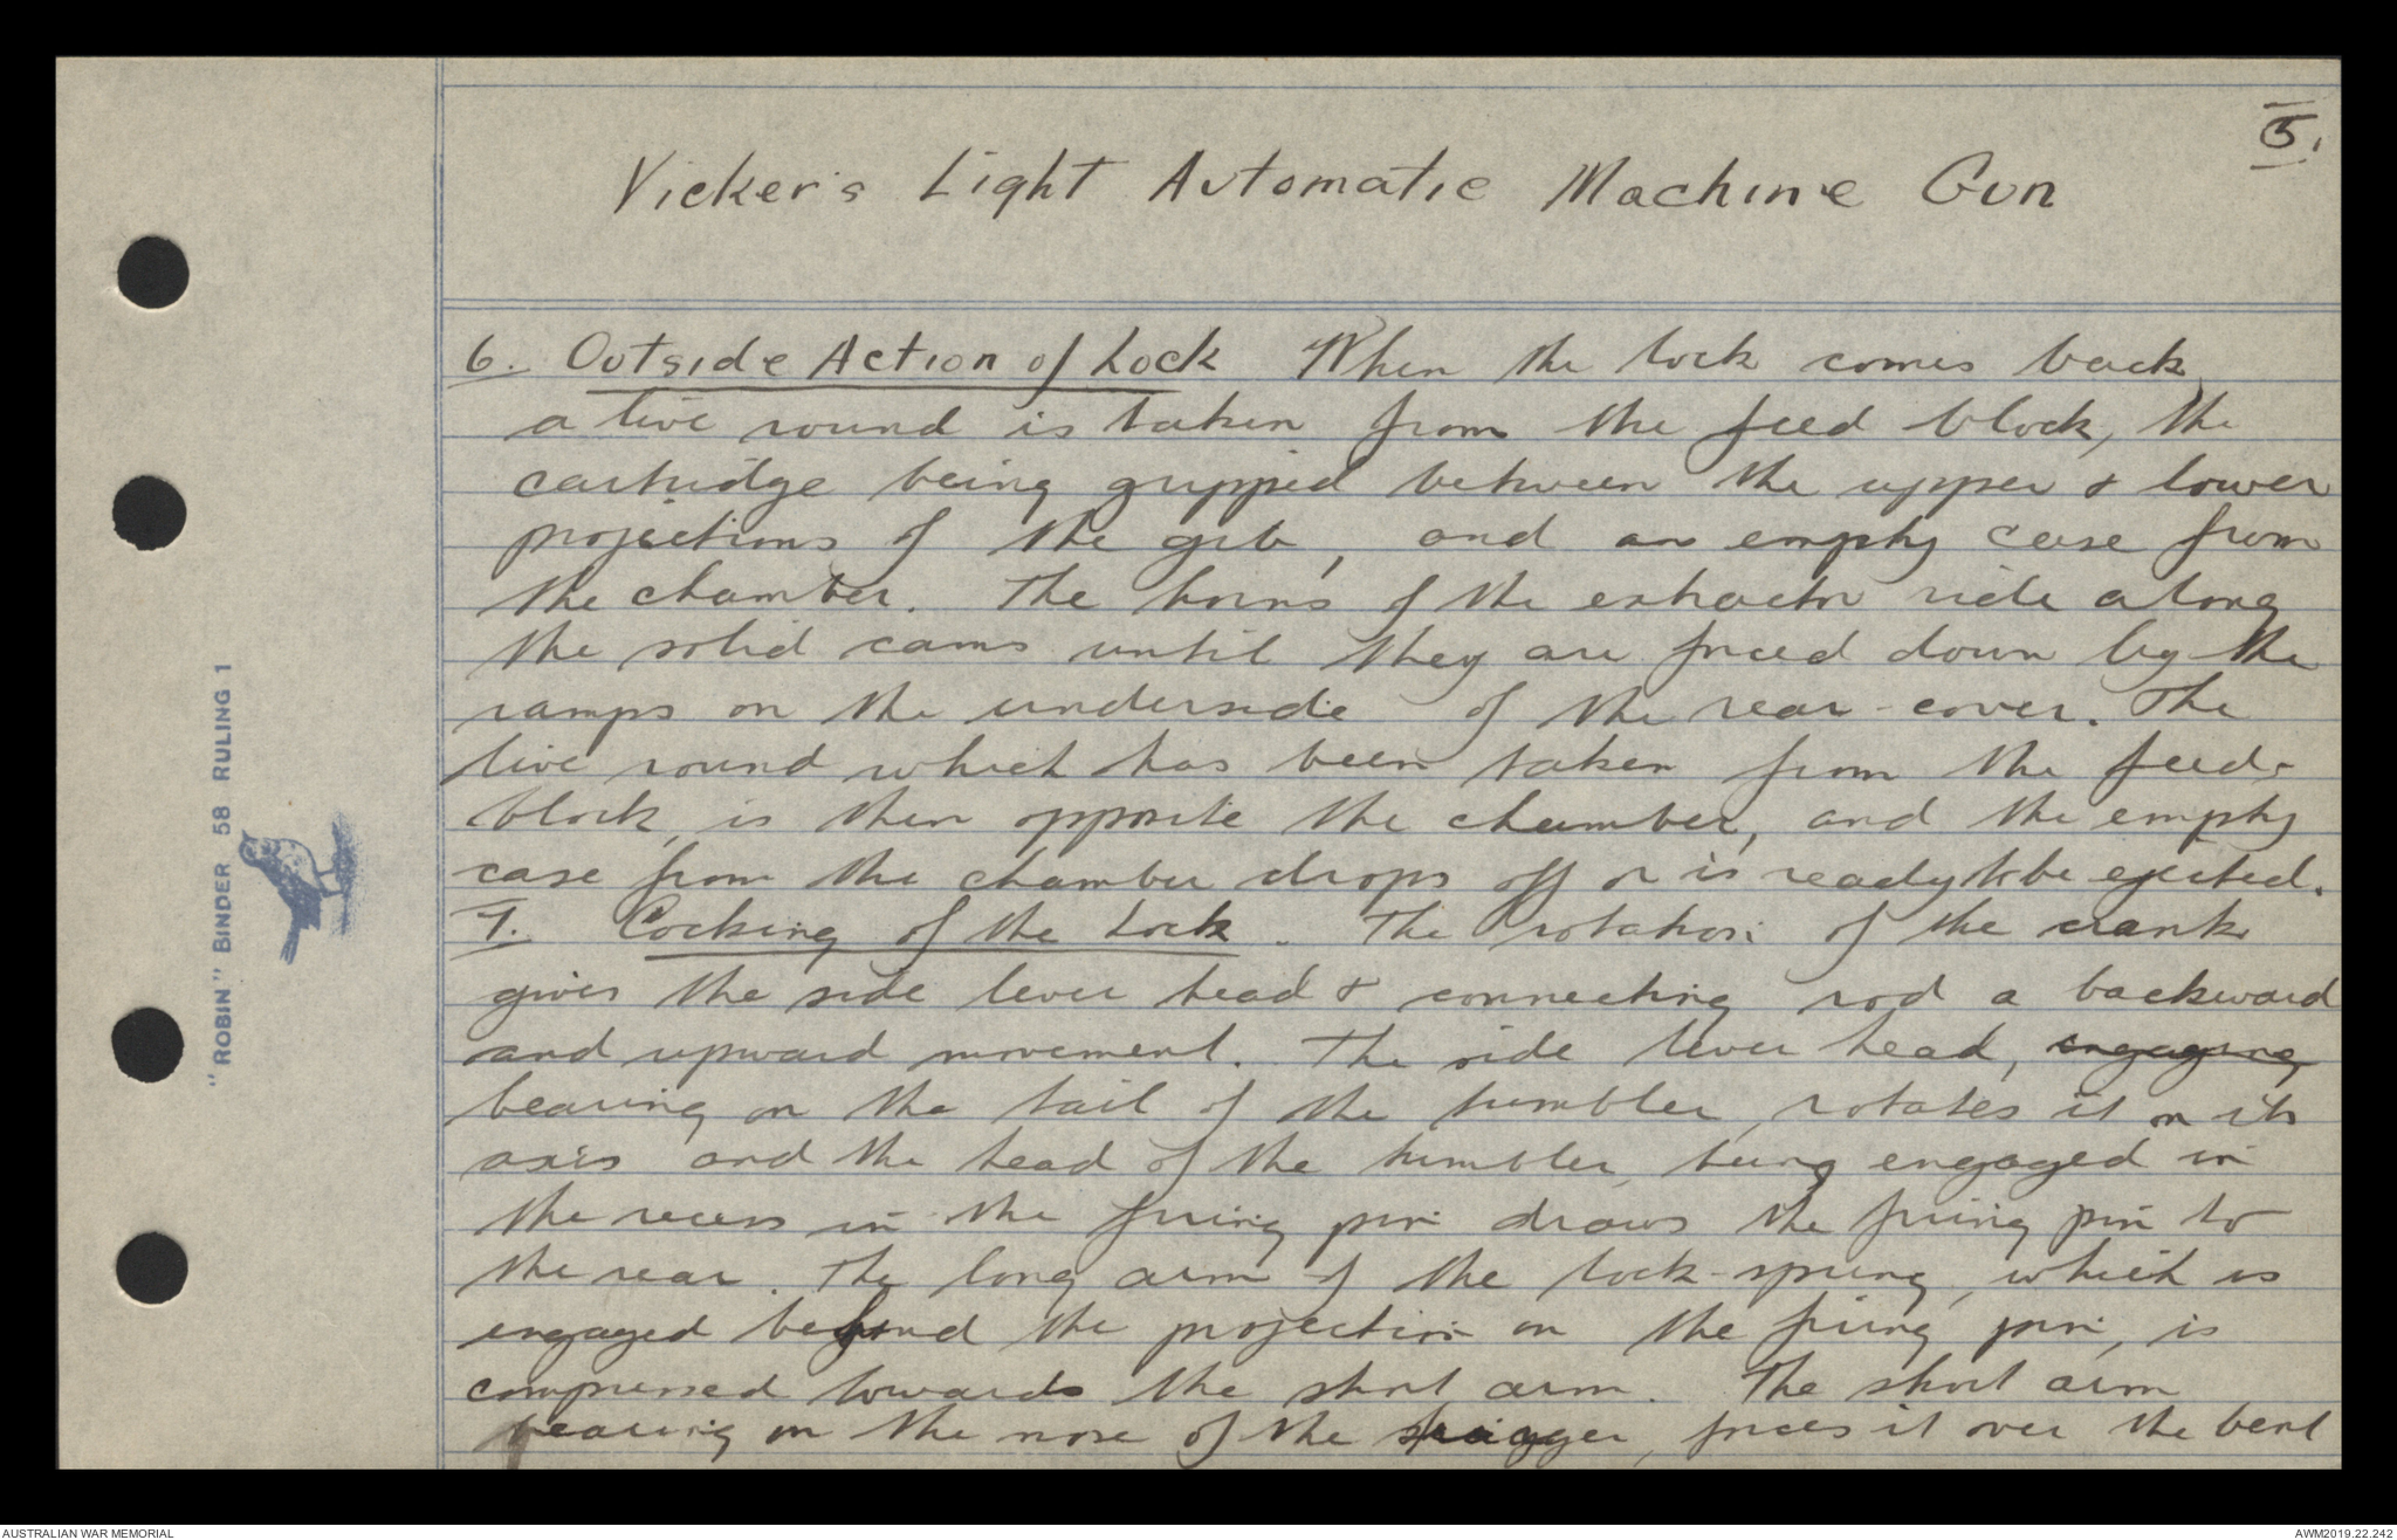 5.
Vicker's Light Automatic Machine Gun
6. Outside Action of Lock When the lock comes back
a live round is taken from the feed block, the
cartridge being gripped between the upper & lower
projections of the gib, and an empty case from
the chamber. The horns of the extractor ride along
the solid cams until they are forced down by the
ramps on the underside of the rear-cover. The
live round which has been taken from the feed-
block, is then opposite the chamber, and the empty
case from the chamber drops off or is ready to be ejected.
7. Cocking of the Lock. The rotation of the crank
gives the side lever head & connecting rod a backward
and upward movement. The side lever head, engaging
bearing on the tail of the tumbler, rotates it on its
axis and the head of the tumbler, being engaged in
the recess in the firing pin draws the firing pin to
the rear. The long arm of the lock-spring, which is
engaged behind the projection on the firing pin, is
compressed towards the short arm. The short arm
bearing on the nose of the trigger, forces it over the bent
"ROBIN" BINDER 58 RULING 1
AUSTRALIAN WAR MEMORIAL
AWM2019.22.242